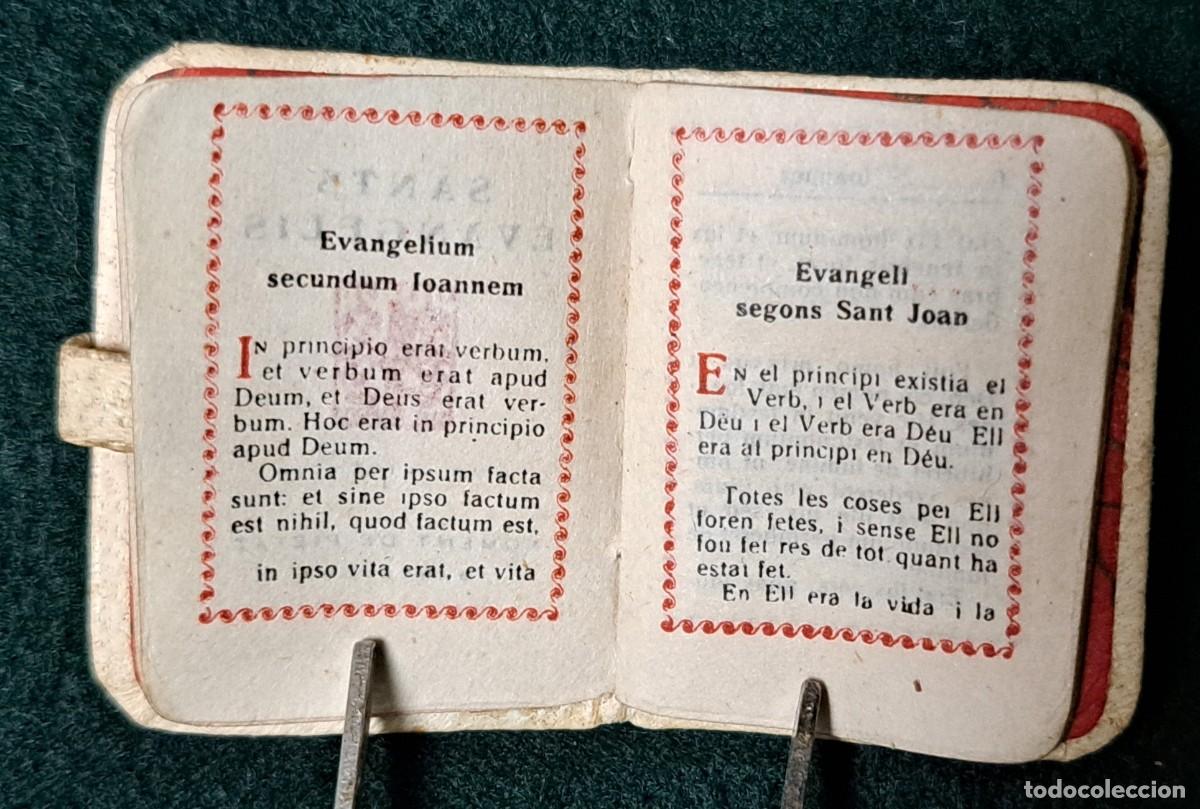 Evangelium
secundum Ioannem
IN principio erat verbum,
et verbum erat apud
Deum, et Deus erat ver-
bum. Hoc erat in principio
apud Deum.
Omnia per ipsum facta
sunt: et sine ipso factum
est nihil, quod factum est,
in ipso vita erat, et vita
Evangeli
segons Sant Joan
EN el principi existia el
Verb, i el Verb era en
Déu i el Verb era Déu Ell
era al principi en Déu.
Totes les coses per Ell
foren fetes, i sense Ell no
fou fet res de tot quant ha
estat fet.
En Ell era la vida i la
todocoleccion